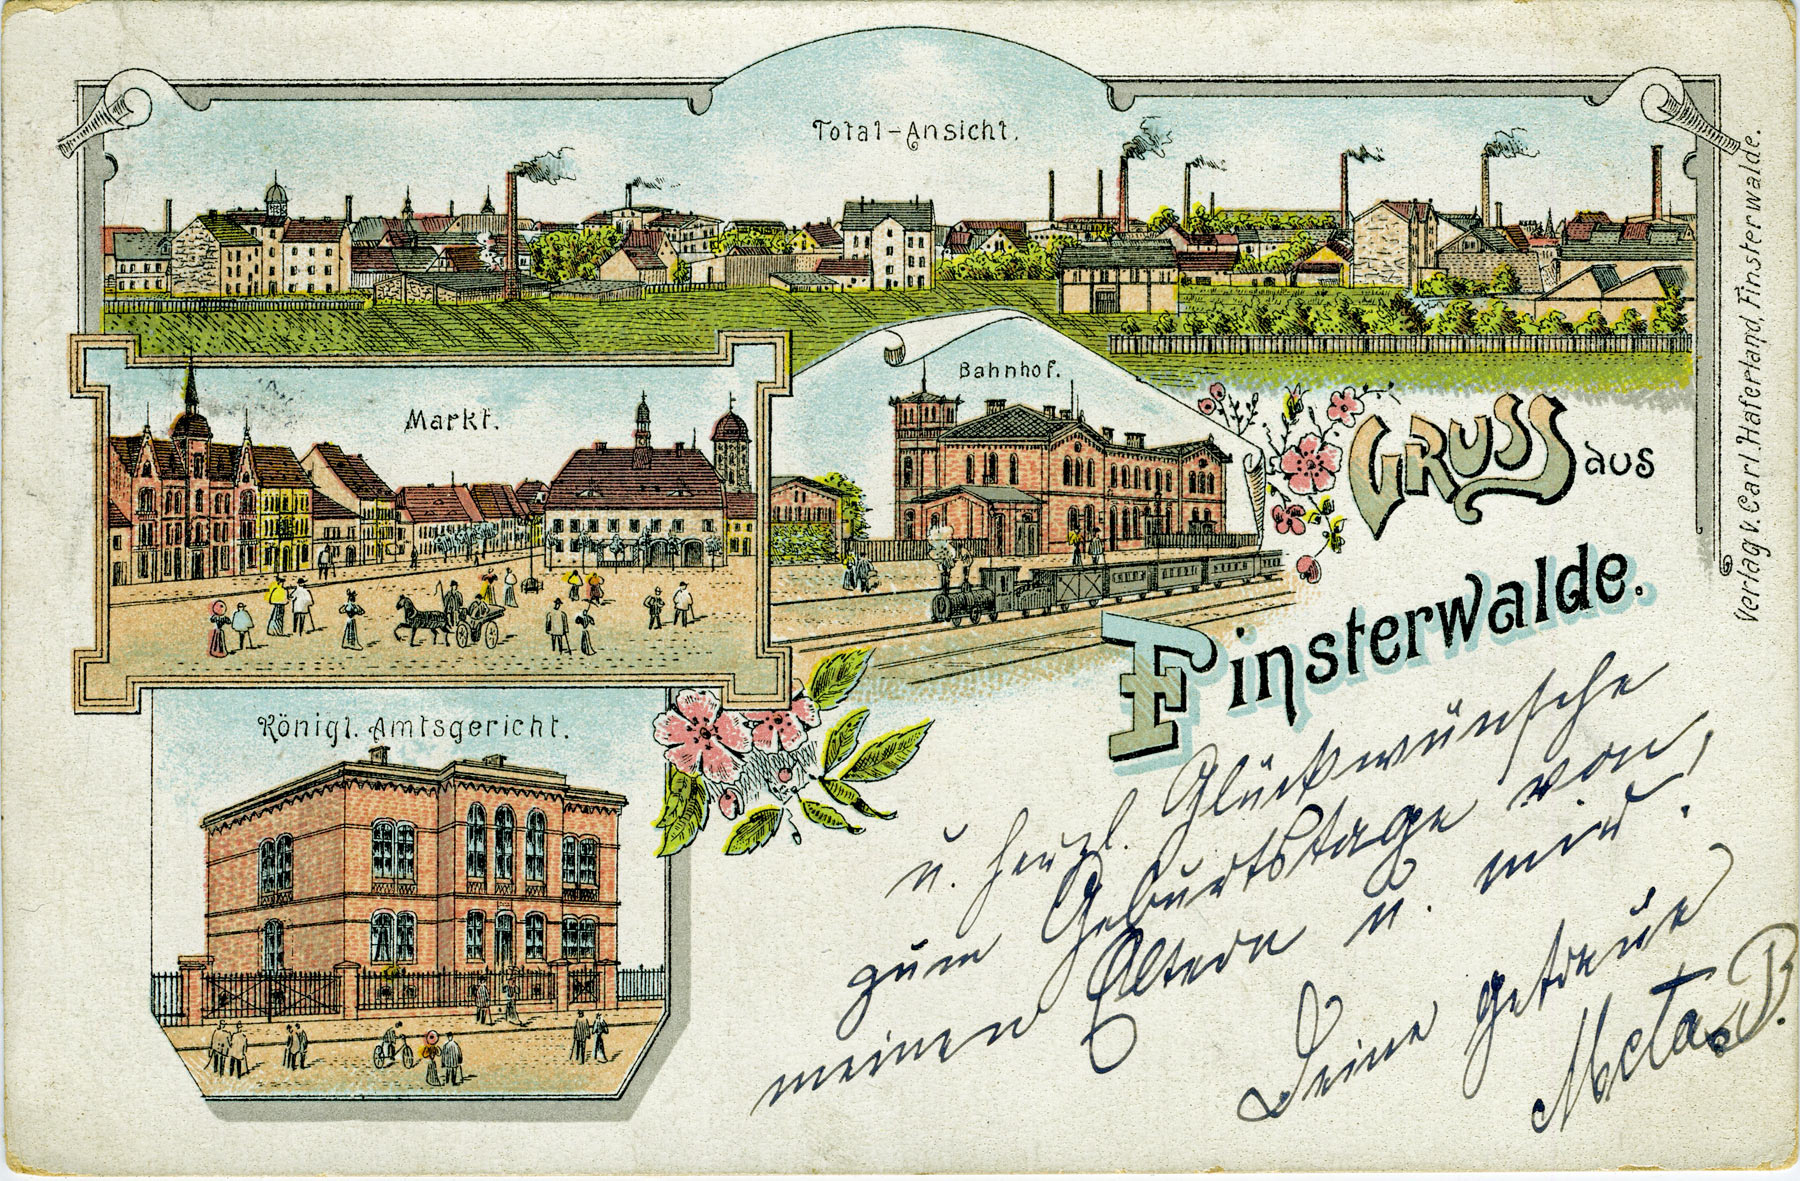 Total-Ansicht.
Markt.
Bahnhof.
GRUSS aus
Finsterwalde.
Königl. Amtsgericht.
Verlag v. Carl. Haferland, Finsterwalde.
u. herzl. Glückwünsche
zum Geburtstage von
meinen Eltern u. mir.
Deine getreue
Meta. B.